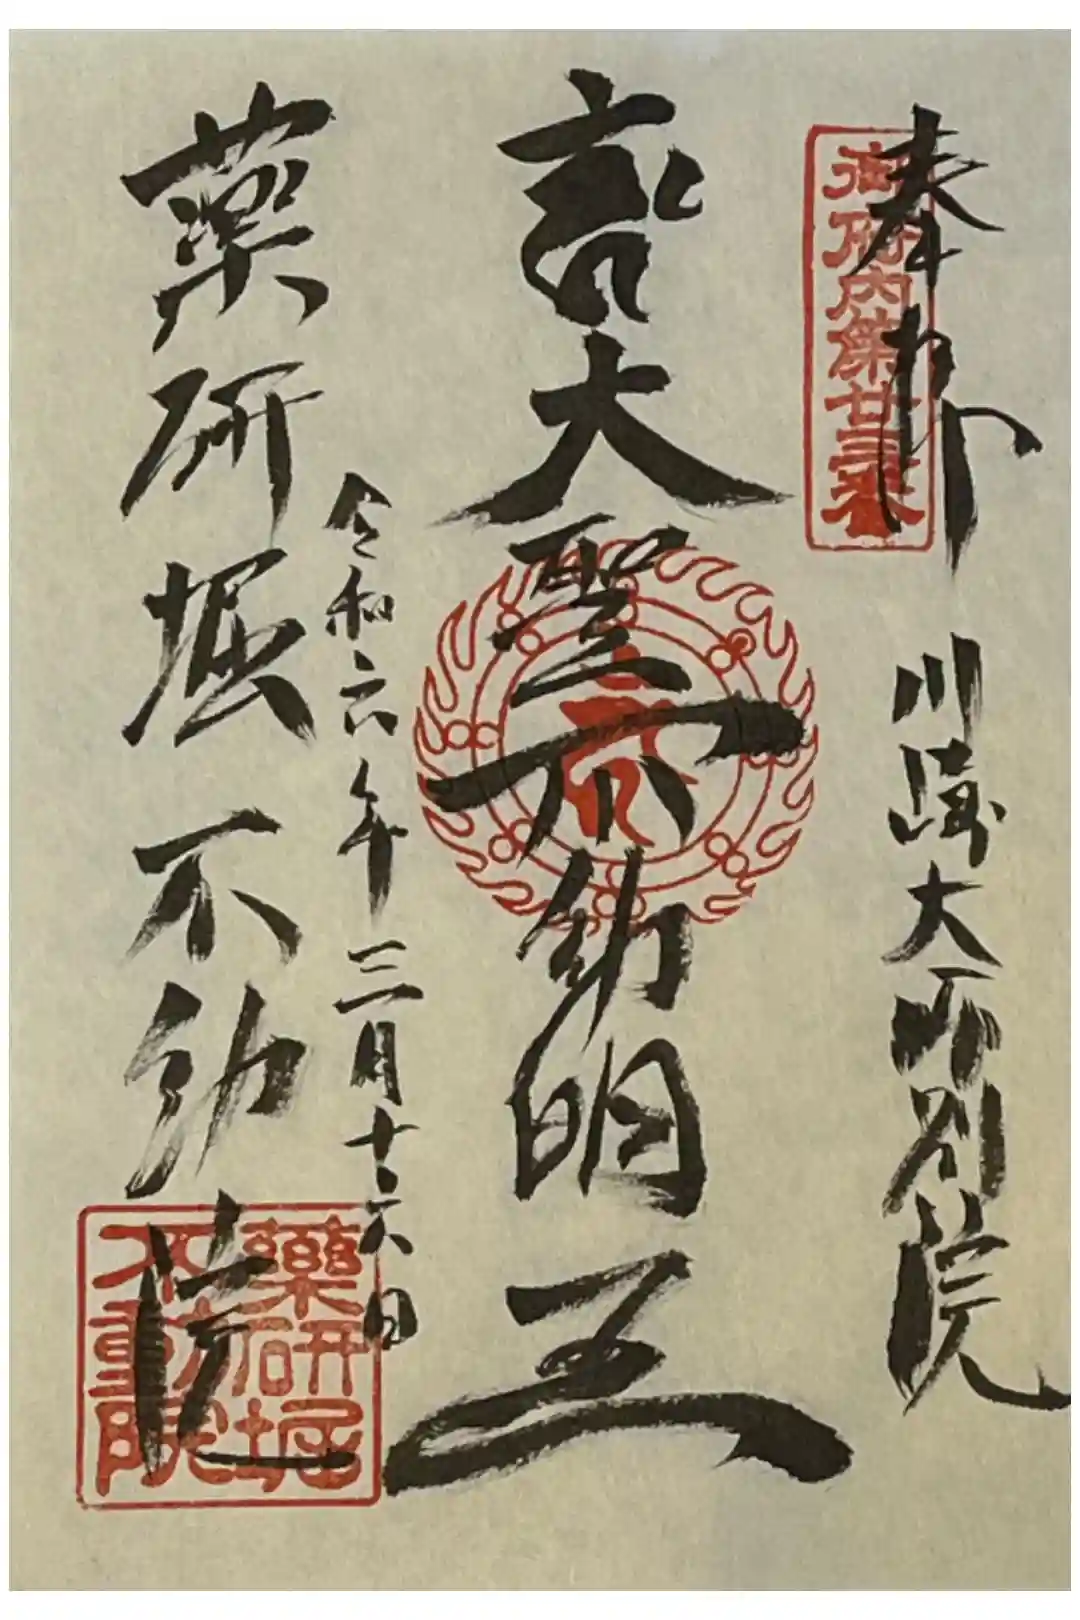 奉拝
御府内第廿三番
川崎大師別院
大聖不動明王
令和六年三月十六日
薬研堀不動院
藥研堀
不動院